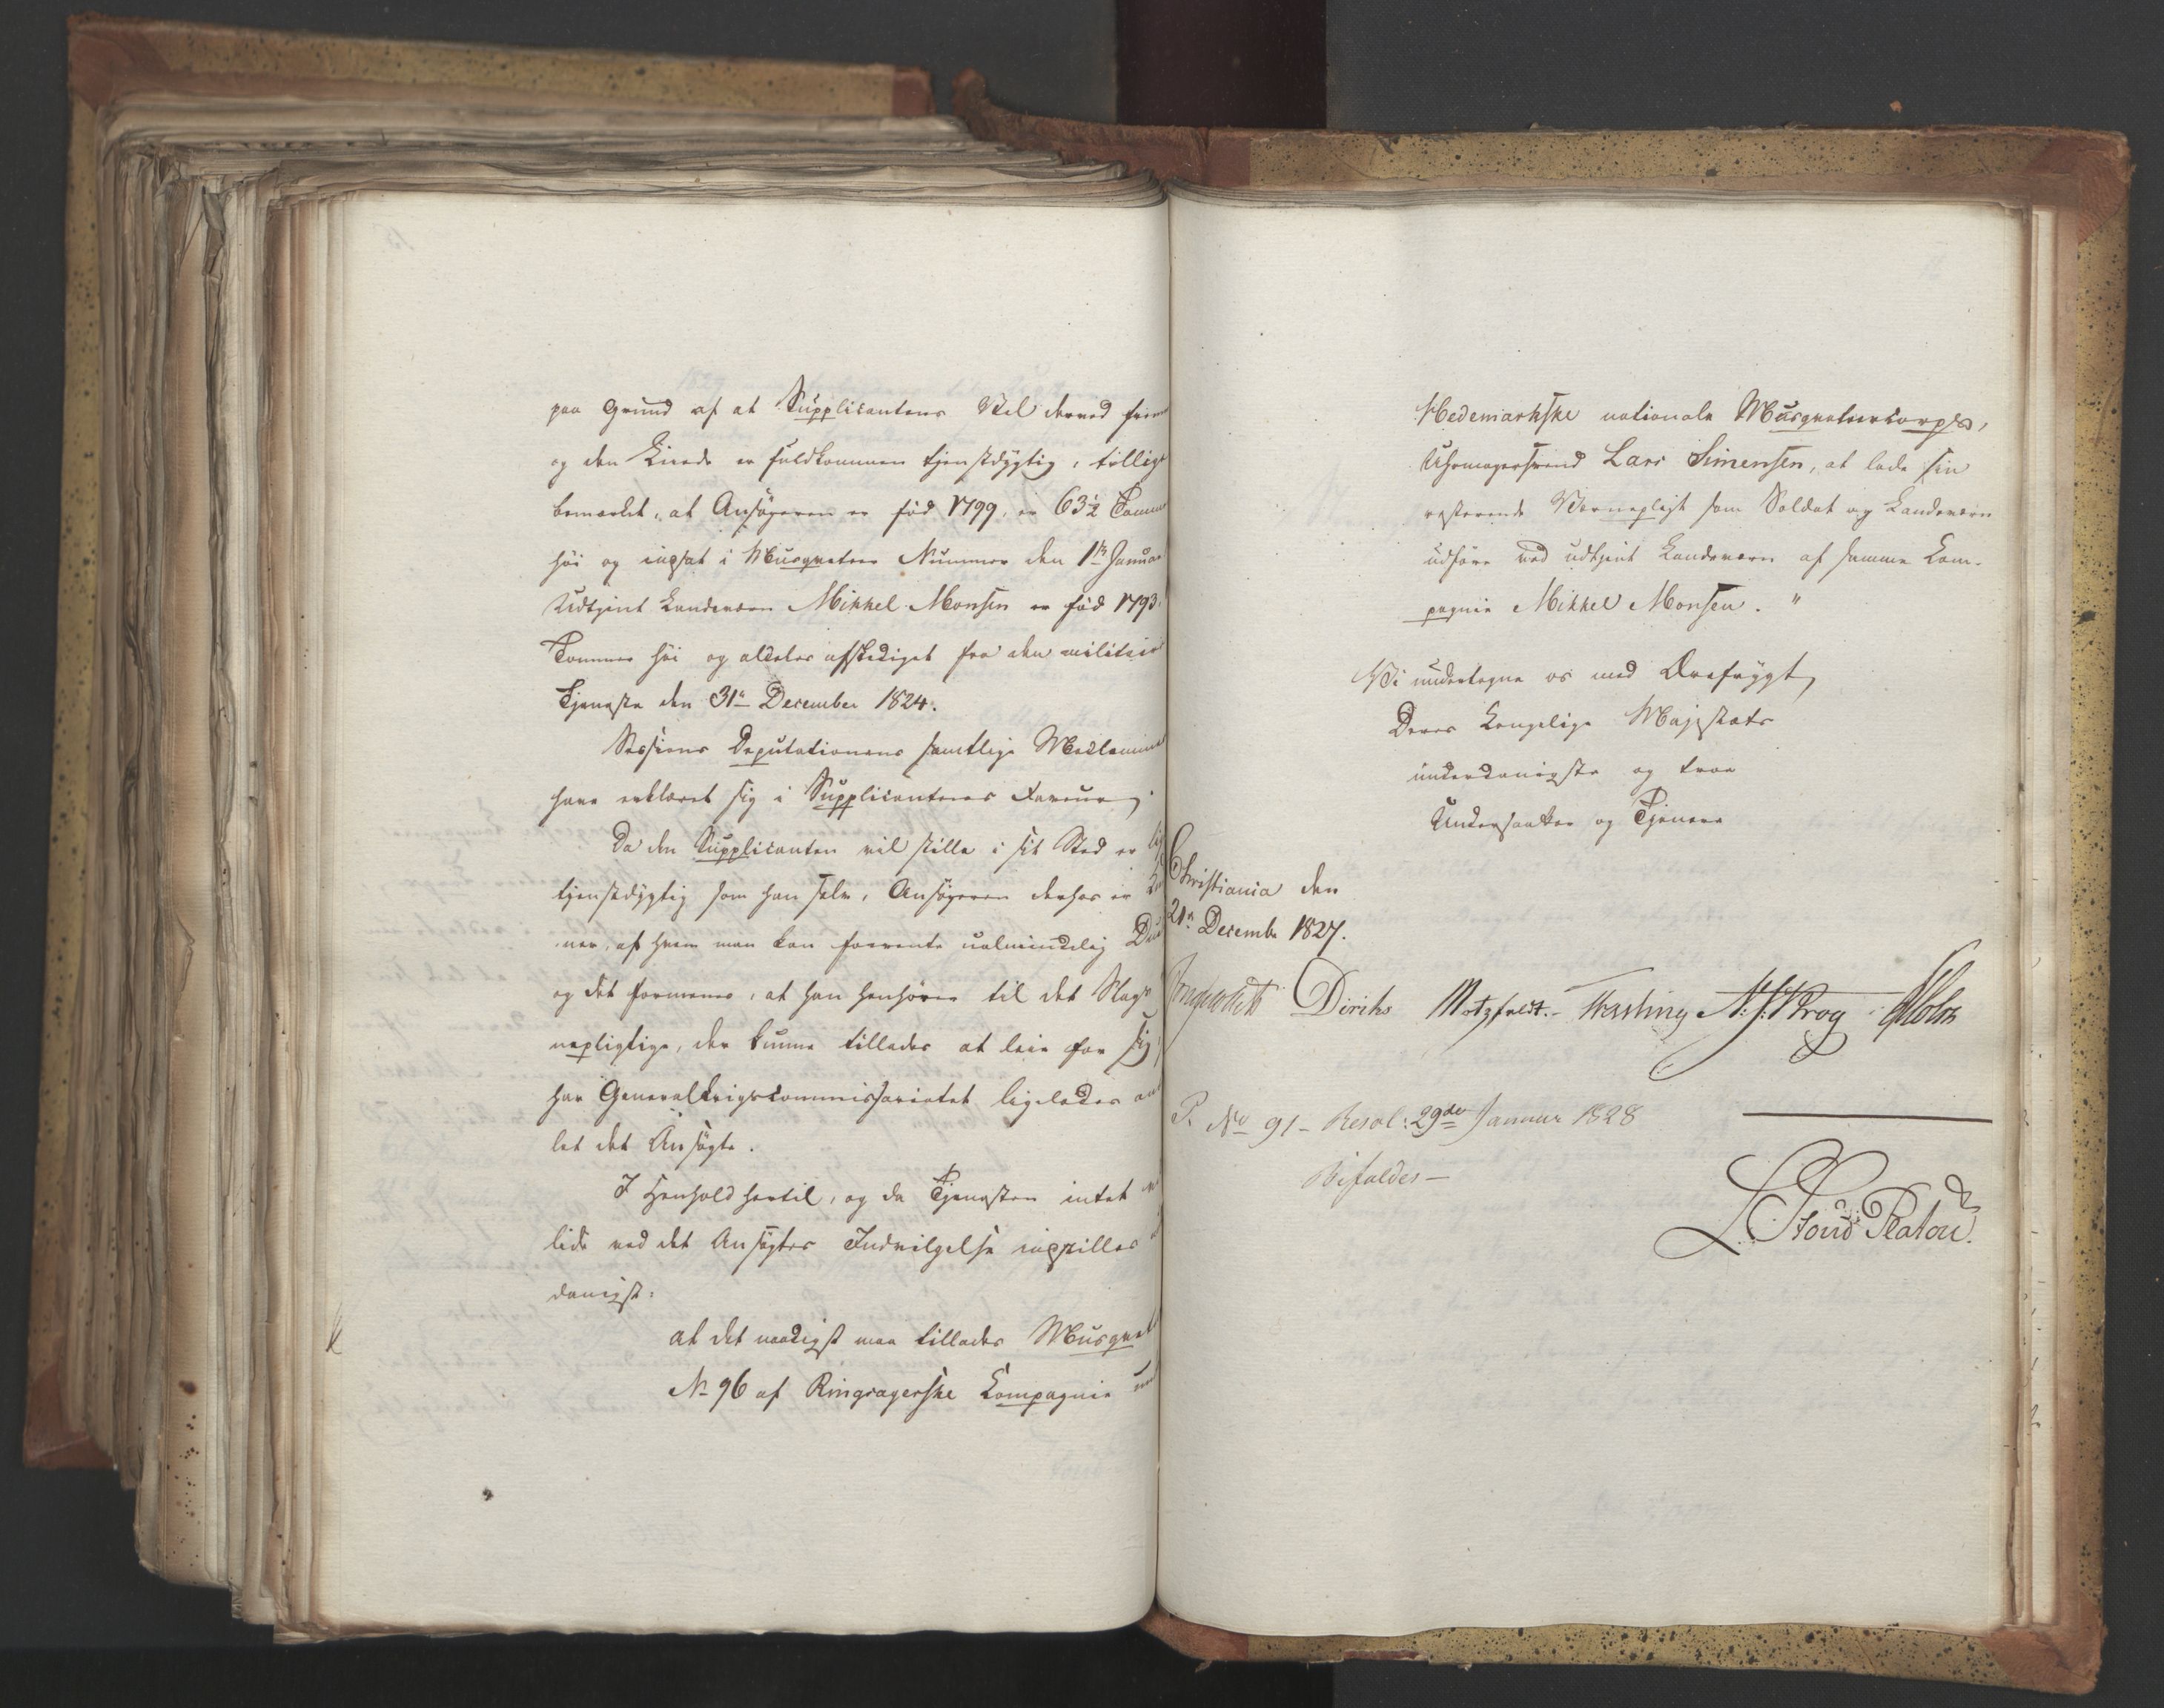 paa Grund af at Supplicantens Vel derved frem
og den Leiede er fuldkommen tjenstdygtig, tilligе
bemærket, at Ansøgeren er fød 1799, er 63½ Tomme
høi og indsat i Musqueteer Nummer den 1te Januar
Udtjent Landeværn Mikkel Monsen er fød 1793,
Tommer høi og aldeles afskediget fra den militaire
Tjeneste den 31te December 1824.
Sessions Deputationens samtlige Medlemmer
have erklæret sig i Supplicantens Faveur.
Da den Supplicanten vil stille i sit Sted er
tjenstdygtig som han selv, Ansøgeren derhos er
ner, af hvem man kan forvente ualmindelig
og det formenes, at han henhører til det Slags
nepligtige, der kunne tillades at leie for sig,
har Generalkrigscommissariatet ligeledes
let det Ansøgte.
I Henhold hertil, og da Tjenesten intet
lide ved det Ansøgtes Indvilgelse indstilles
danigst:
at det naadigst maa tillades Musquet
No 96 af Ringsagerske Compagnie
Hedemarkske nationale Musqueteercorps,
Uhrmagersvend Lars Simensen, at lade sin
resterende Værnepligt som Soldat og Landeværn
udføre ved udtjent Landeværn af samme Com-
pagnie Mikkel Monsen. "
Vi undertegne os med Ærefrygt,
Deres Kongelige Majestæts
underdanigste og troe
Undersaatter og Tjenere
Christiania den
21de Decembr 1827.
Diriks Motzfeldt. Fasting N. J. Krog Holst
P. No 91 - Resol: 29de Januar 1828
Bifaldes -
L. Stoud Platou.